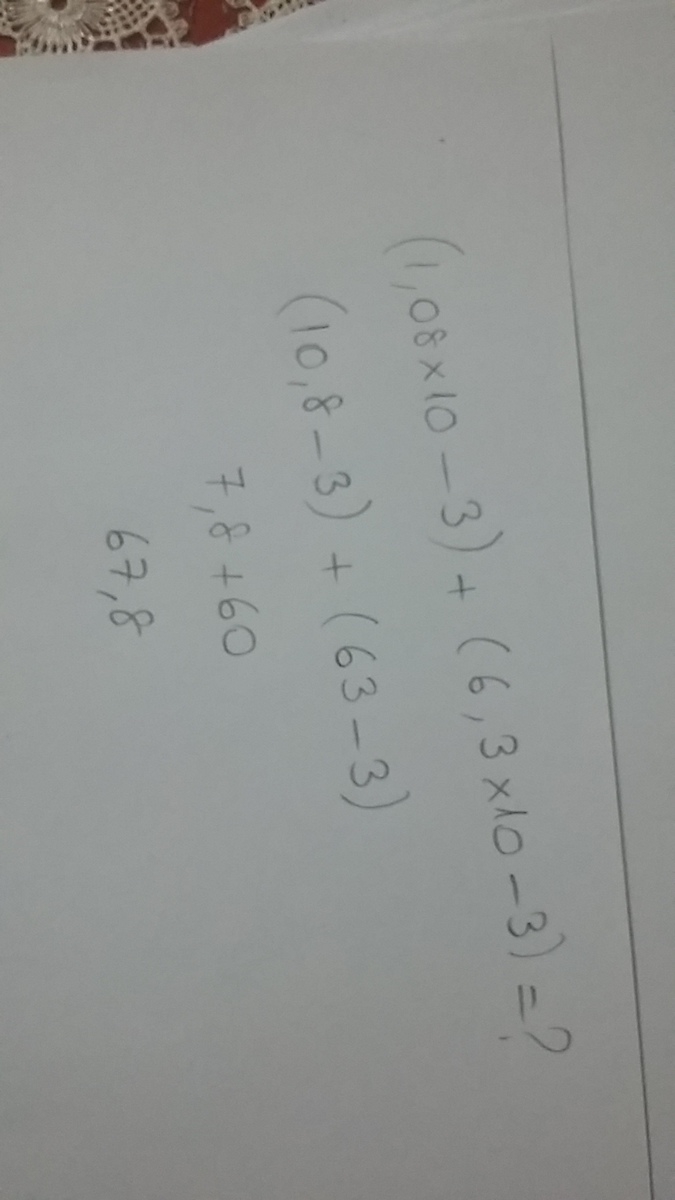 (1,08×10-3)+(6,3×10-3)=?
(10,8-3)+(63-3)
7,8+60
67,8